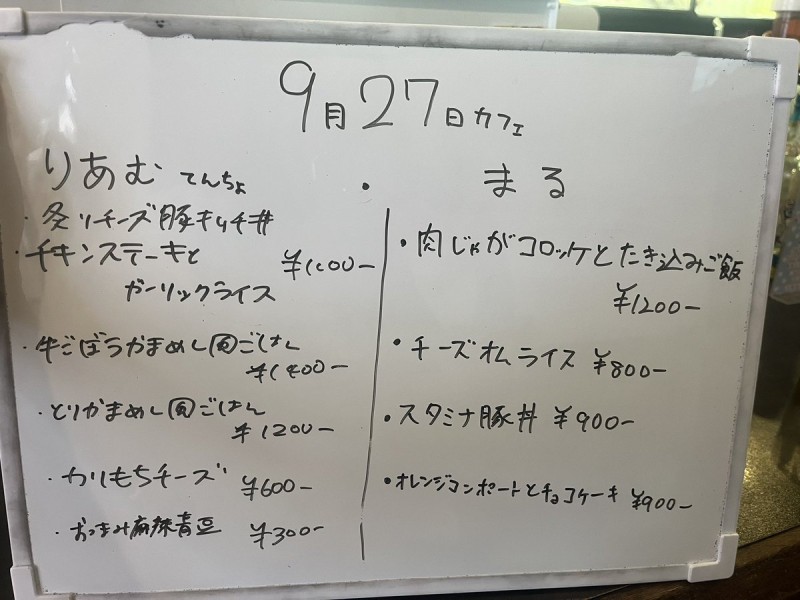 9月27日カフェ
りあむ てんちょ
・炙りチーズ豚キムチ丼
・チキンステーキと
ガーリックライス
¥1000-
・牛ごぼうかまめし風ごはん
¥1400-
・とりかまめし風ごはん
¥1200-
・カリもちチーズ ¥600-
・おつまみ麻辣青豆 ¥300-
・まる
・肉じゃがコロッケとたき込みご飯
¥1200-
・チーズオムライス ¥800-
・スタミナ豚丼 ¥900-
・オレンジコンポートとチョコケーキ ¥900-